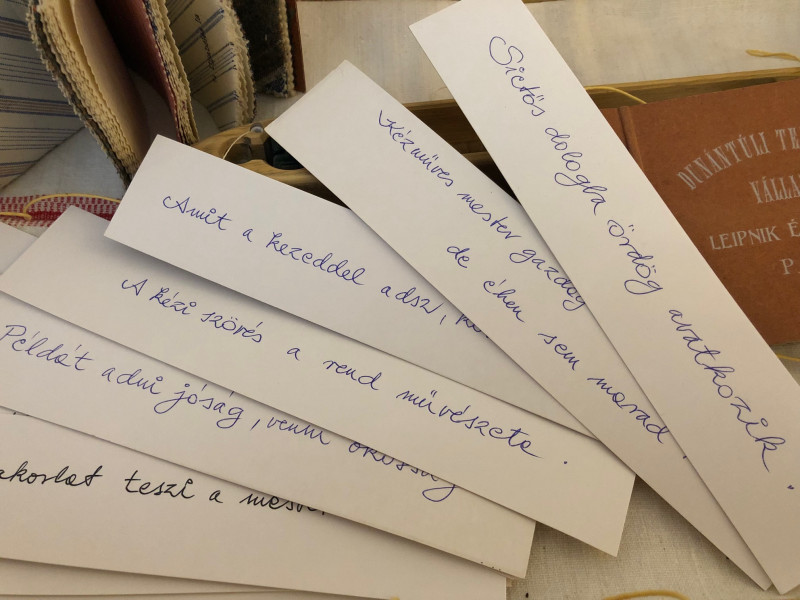 Sietős dologba ördög avatkozik.
Kézműves mester gazdag
de éhen sem marad.
Amit a kezeddel adsz,
A kézi szövés a rend művészete.
Példát adni jóság, venni okosság
teszi a
DUNÁNTÚLI
LEIPNIK
P.